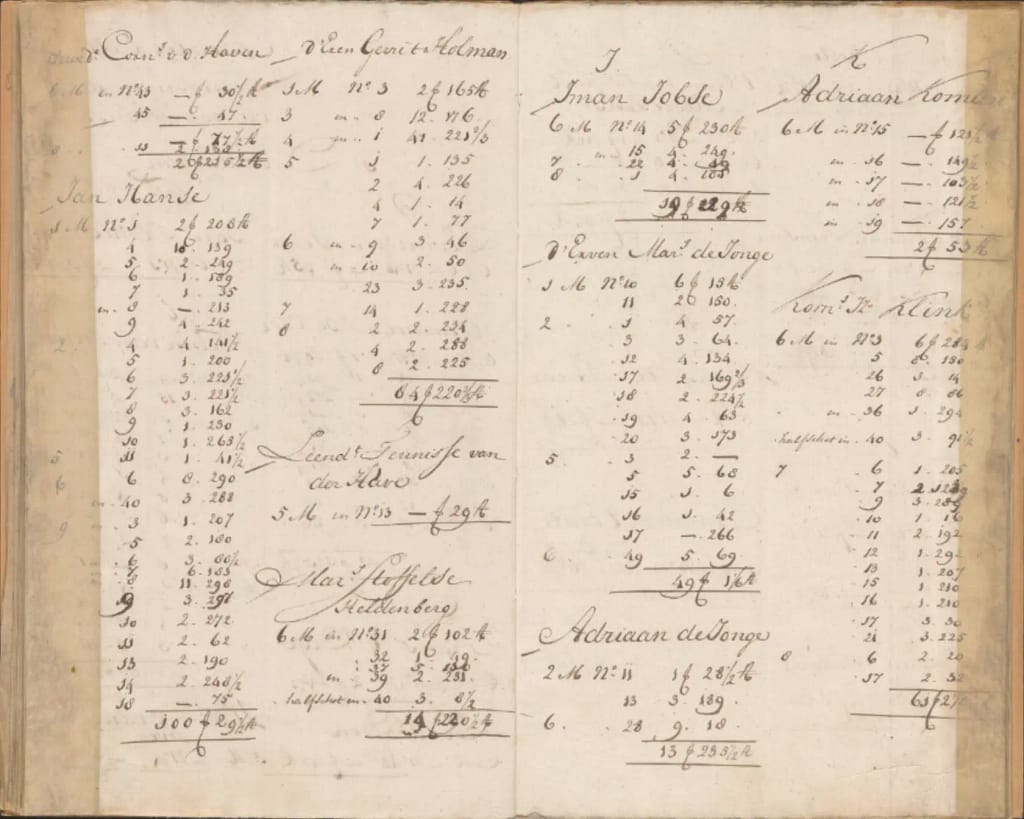 Corn.s v d Haven
6 M in N.o 43 — ƒ 30 1/2 ℔
45 — . 47 .
— ƒ 77 1/2 ℔
11 2 .
2 ƒ 235 1/2 ℔
Jan Hanse
1 M N.o 1 2 ƒ 208 ℔
4 10 . 139
5 2 . 249
6 1 . 189
7 1 . 35
in . 8 — . 213
9 4 . 242
4 4 . 141 1/2
5 1 . 200
6 3 . 223 1/2
7 3 . 221 1/2
8 3 . 162
9 1 . 230
10 1 . 263 1/2
11 1 . 41 1/2
6 8 . 290
in . 40 3 . 288
3 1 . 207
5 2 . 180
6 3 . 80 1/2
7 6 . 183
8 11 . 298
9 3 . 291
10 2 . 272
11 2 . 62
13 2 . 190
14 2 . 248 1/2
18 — . 75 .
100 ƒ 29 1/2 ℔
D'Erven Gerrit Holman
1 M N.o 3 2 ƒ 165 ℔
3 in . 8 12 . 176
4 in . 1 41 . 221 2/3
5 1 1 . 135
2 4 . 226
4 1 . 14
7 1 . 77
6 in . 9 3 . 46
in . 10 2 . 50
23 3 . 235
7 14 1 . 228
8 2 2 . 234
4 2 . 288
8 2 . 225
84 ƒ 220 2/3 ℔
Leend.t Teunisse van
der Have
5 M in N.o 13 — ƒ 29 ℔
Mar.s Stoffelse
Heldenberg
6 M in N.o 31 2 ƒ 102 ℔
32 1 . 49 .
37 5 . 130
in 39 2 . 231
halfschot in . 40 3 . 8 1/2
14 ƒ 220 1/2 ℔
J.
Iman Jobse
6 M N.o 14 5 ƒ 230 ℔
in . 15 4 . 249 .
7 22 4 . 49
8 1 4 . 101
19 ƒ 29 ℔
D'Erven Mar.s de Jonge
1 M N.o 10 6 ƒ 15 ℔
11 26 150 .
2 . 1 4 . 57
3 3 . 64 .
12 4 . 134
17 2 . 169 2/3
18 2 . 224 1/2
19 4 . 63
20 3 . 173
5 . 3 2 . —
5 5 . 68
15 1 . 6
16 1 . 42
17 — . 266
6 49 5 . 69 .
49 ƒ 1/6 ℔
Adriaan de Jonge
2 M N.o 11 1 ƒ 28 1/2 ℔
13 3 . 189 .
6 . 28 9 . 18 .
13 ƒ 235 1/2 ℔
K
Adriaan
6 M in N.o 15 — ƒ 121 1/2
in . 16 — . 149 1/2
in . 17 — . 103 1/2
in . 18 — . 121 1/2
in . 19 — . 157
2 ƒ 53 ℔
Korn.s Jz. Klink
6 M in N.o 3 6 ƒ 284
5 8 . 130
26 1 . 14
27 8 . 86
in . 36 1 . 294
halfschot in . 40 3 . 91 1/2
7 6 1 . 205
7 2
9 3 .
10 1 . 16
11 2 . 192
12 1 . 292
13 1 . 207
15 1 . 210
16 1 . 210
17 3 . 30
21 3 . 225
8 6 2 . 20
17 2 . 32